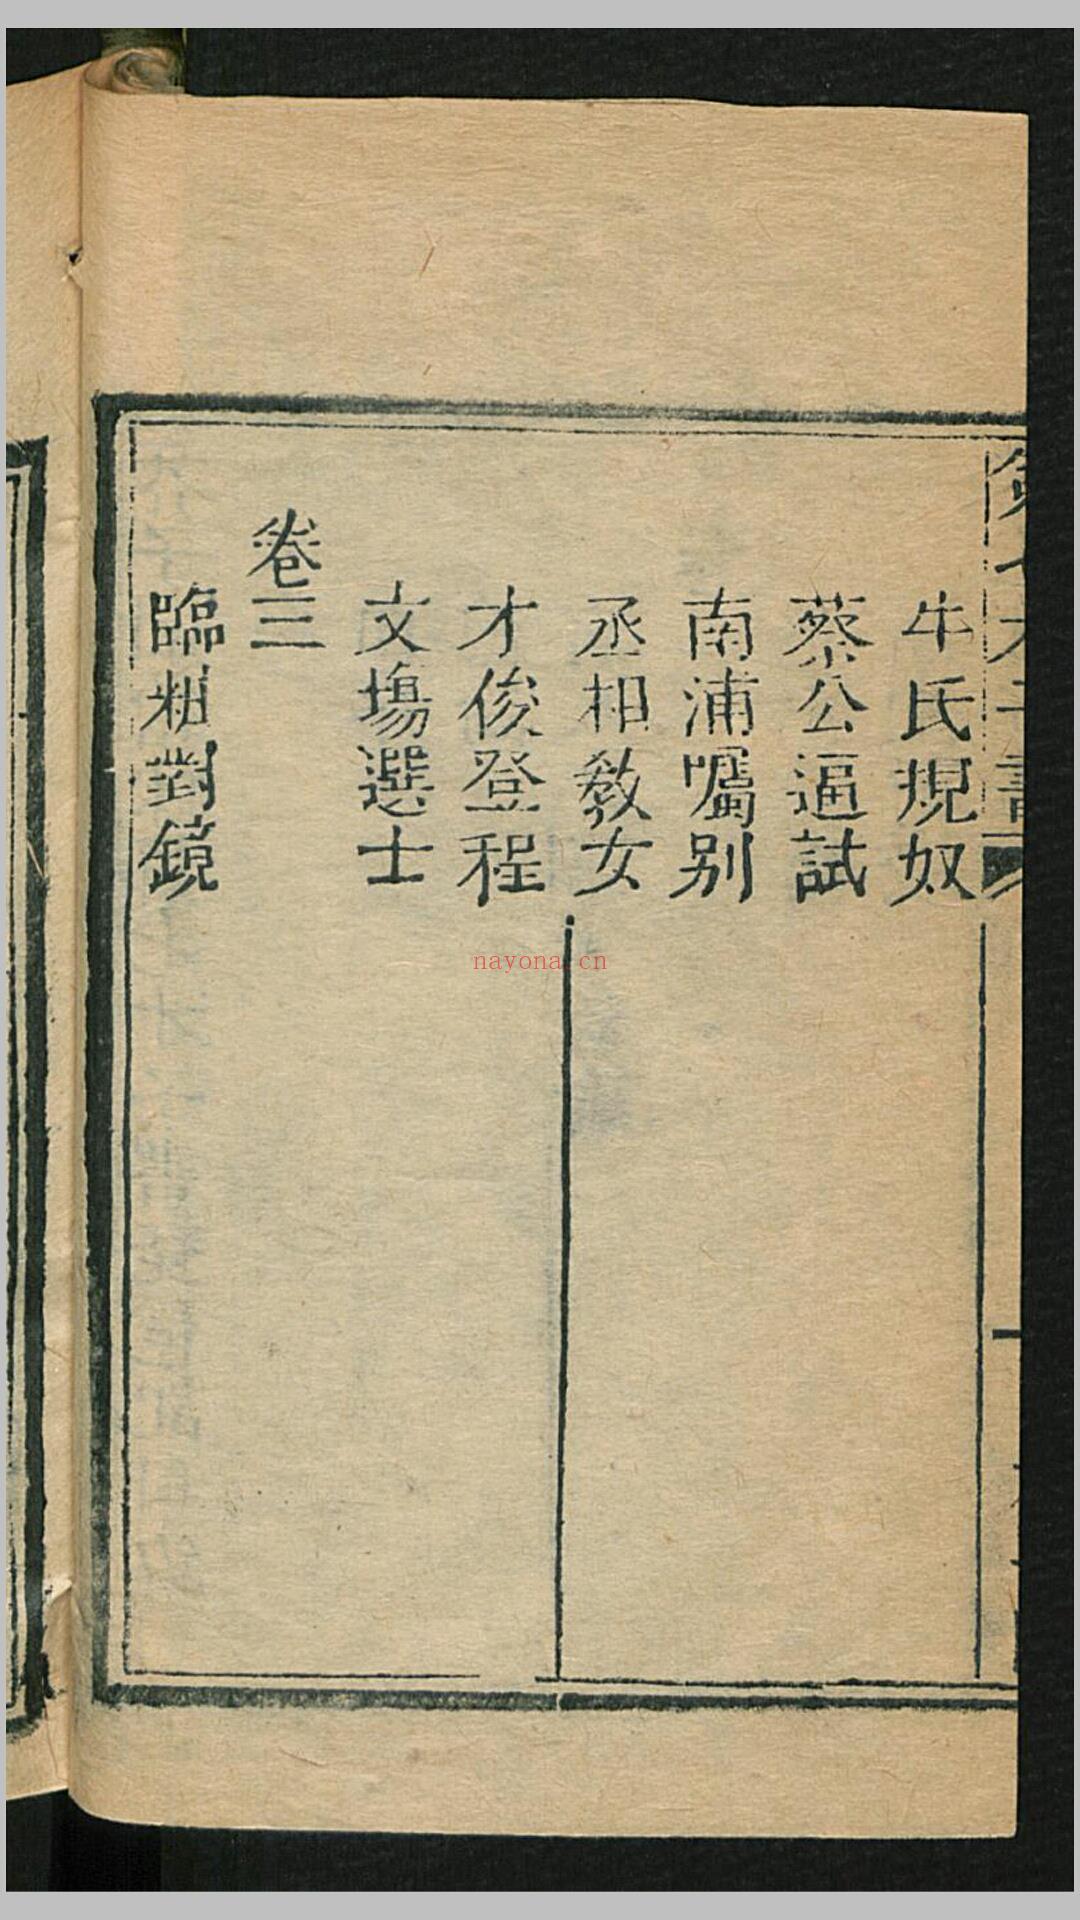 牛氏規奴
蔡公逼試
南浦囑别
丞相教女
才俊登程
文場選士
卷三
臨粧對鏡
nayona.cn